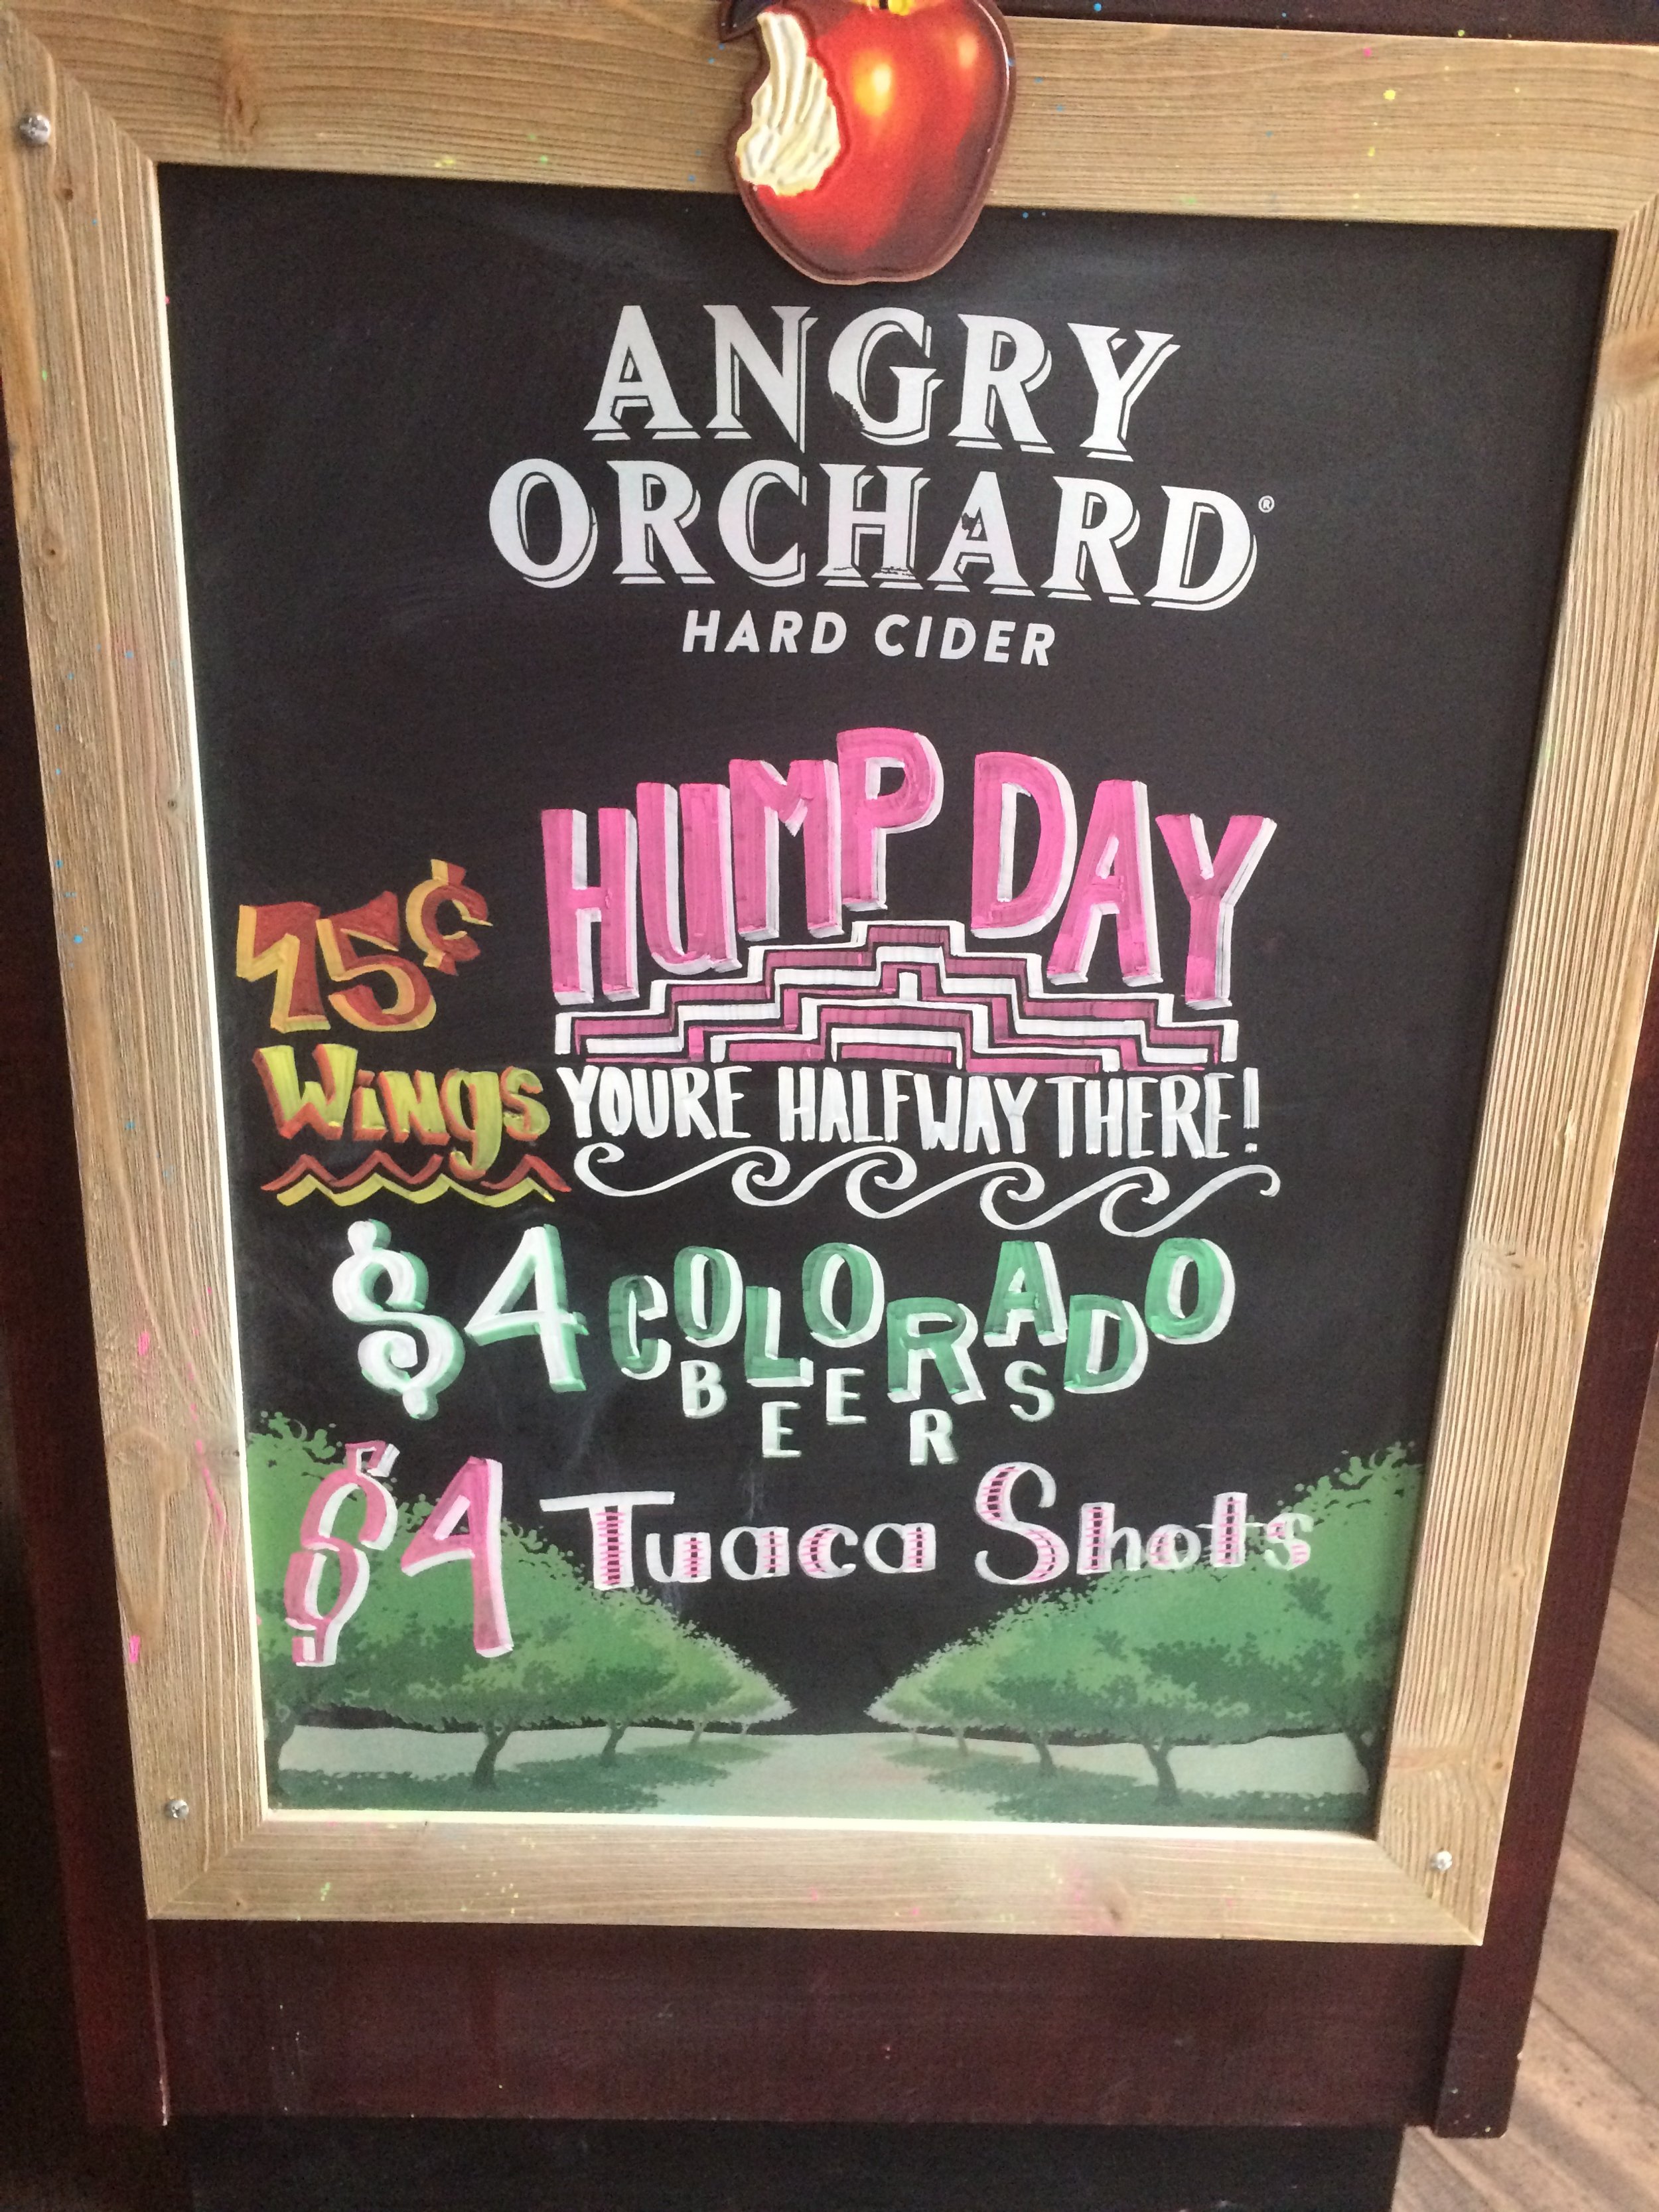 ANGRY
ORCHARD®
HARD CIDER
HUMP DAY
75¢
Wings
YOURE HALFWAY THERE!
$4 COLORADO
BEERS
$4 Tuaca Shots